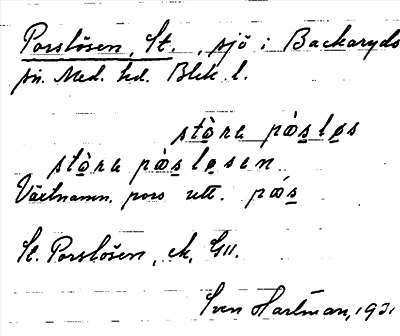 Porslösen, St., sjö i Backaryds
sn. Med. hd. Blek. l.
stòra pòsløs
stòra pòsløsen
Växtnamn. pors utt. pòs
St. Porslösen, ek, GII.
Sven Hartman, 1931